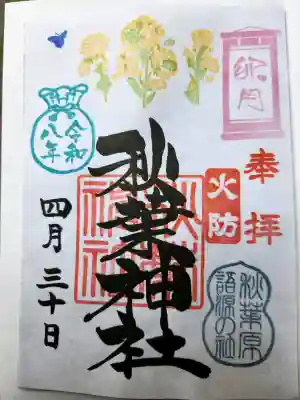 卯月
奉拝
火防
秋葉原
語源の社
秋葉神社
令和
八年
四月三十日